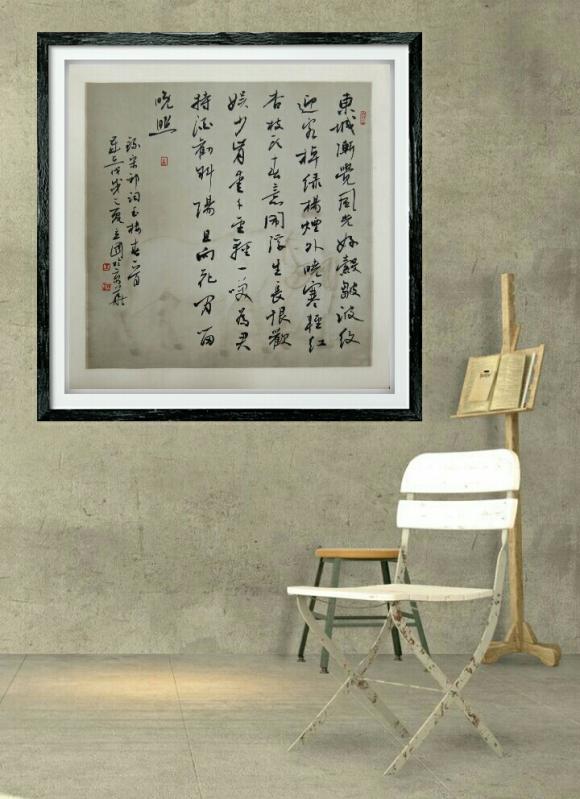 東城漸覺風光好縠皺波紋
迎客棹綠楊煙外曉寒輕紅
杏枝頭春意鬧浮生長恨歡
娛少肯愛千金輕一笑為君
持酒勸斜陽且向花間留
晚照
錄宋祁詞玉樓春一首
之夏立國於京華